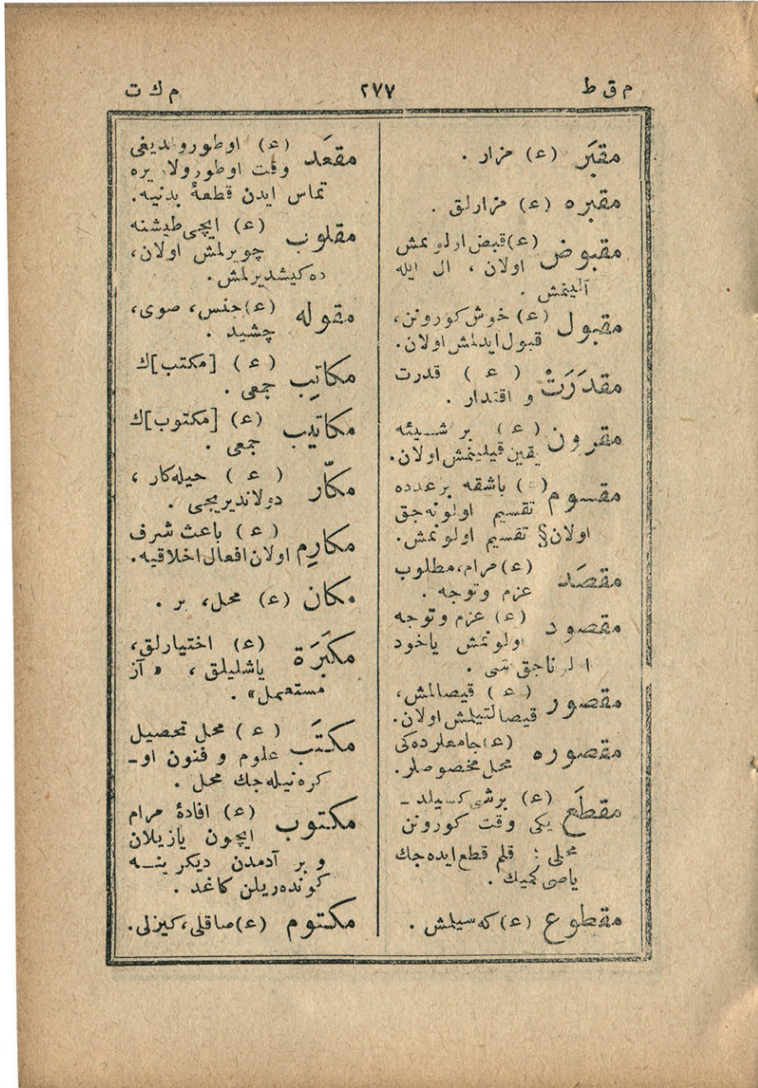 م ق ط
٢٧٧
م ك ت
مقبَر (ع) مزار .
مقبره (ع) مزارلق .
مقبوض (ع) قبض اولونمش
اولان ، ال ايله
آلينمش .
مقبول (ع) خوش كورونن،
قبول ايدلمش اولان.
مقدَرَتْ (ع) قدرت
و اقتدار .
مقرون (ع) بر شيئه
يقين قيلينمش اولان.
مقسوم (ع) باشقه بر عدده
تقسيم اولونه جق
اولان§ تقسيم اولونمش.
مقصَد (ع) مرام، مطلوب
عزم وتوجه .
مقصود (ع) عزم وتوجه
اولونمش ياخود
ناجق شى .
مقصور (ع) قيصالمش،
قيصالتيلمش اولان.
مقصوره (ع) جامعلرده كى
محل مخصوصلر.
مقطَع (ع) برشى كسيلد ـ
يكى وقت كورونن
محلى : قلم قطع ايده جك
ياصى كميك .
مقطوع (ع) كه سيلمش .
مقعَد (ع) اوطورولديغى
وقت اوطورولان يره
تماس ايدن قطعۀ بدنيه.
مقلوب (ع) ايچى طيشنه
چويرلمش اولان،
ده كيشديرلمش.
مقوله (ع) جنس، صوى،
چشيد .
مكاتِب (ع) [مكتب]ك
جمعى .
مكاتيب (ع) [مكتوب]ك
جمعى .
مكّار (ع) حيله كار ،
دولانديريجى .
مكارِم (ع) باعث شرف
اولان افعال اخلاقيه.
مكان (ع) محل، ير .
مكبَرَة (ع) اختيارلق،
ياشليلق ، « آز
مستعمل» .
مكتَب (ع) محل تحصيل
علوم و فنون او ـ
كره نيله جك محل .
مكتوب (ع) افادۀ مرام
ايچون يازيلان
و بر آدمدن ديكرينـه
كونده ريلن كاغد .
مكتوم (ع) صاقلى، كيزلى.